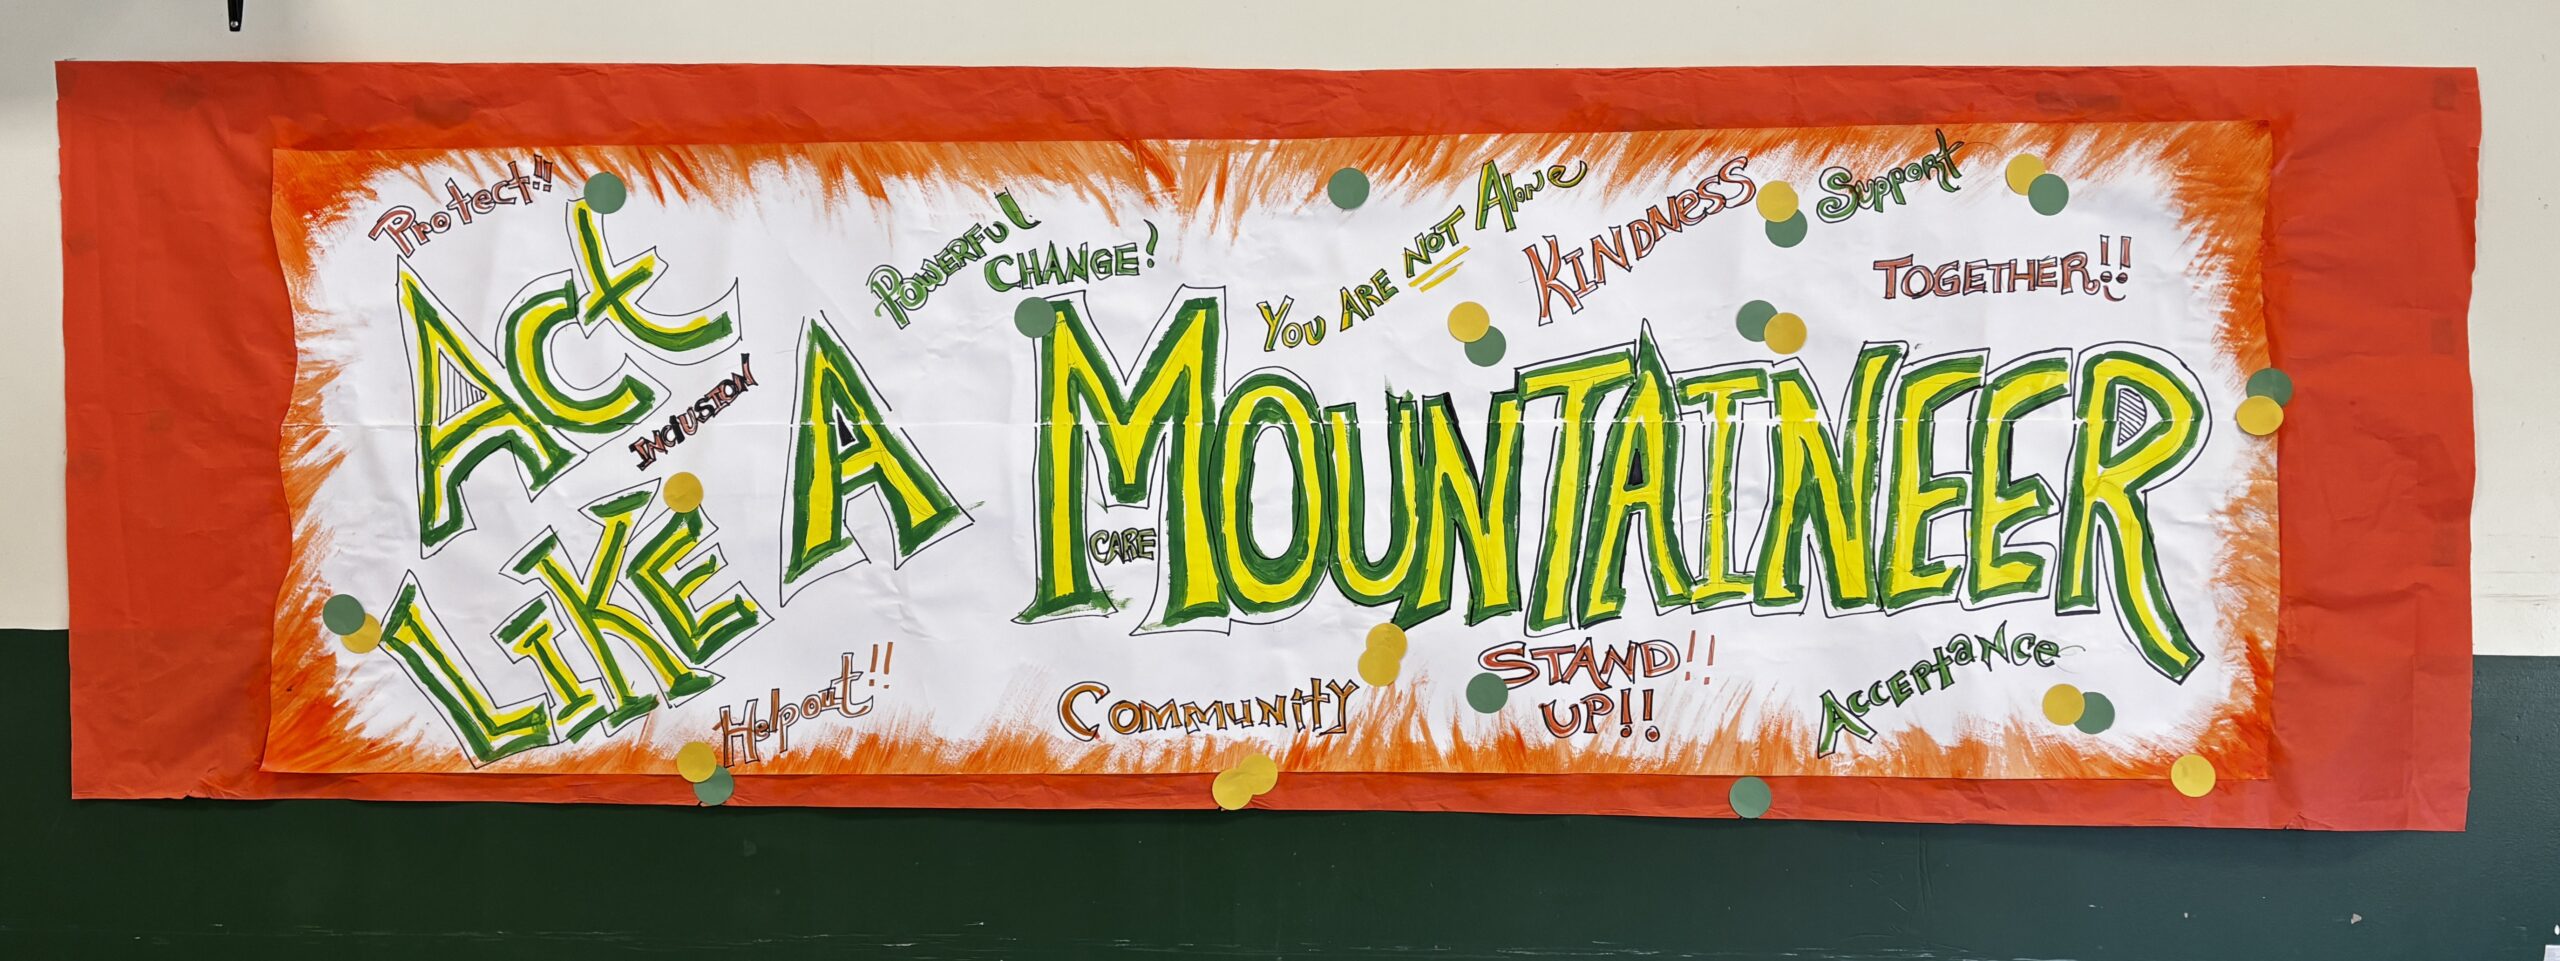 Protect!!
Act
Like
A
Mountaineer
Inclusion
Powerful
Change!
You Are Not Alone
Kindness
Support
Together!!
Care
Help out!!
Community
Stand!!
Up!!
Acceptance